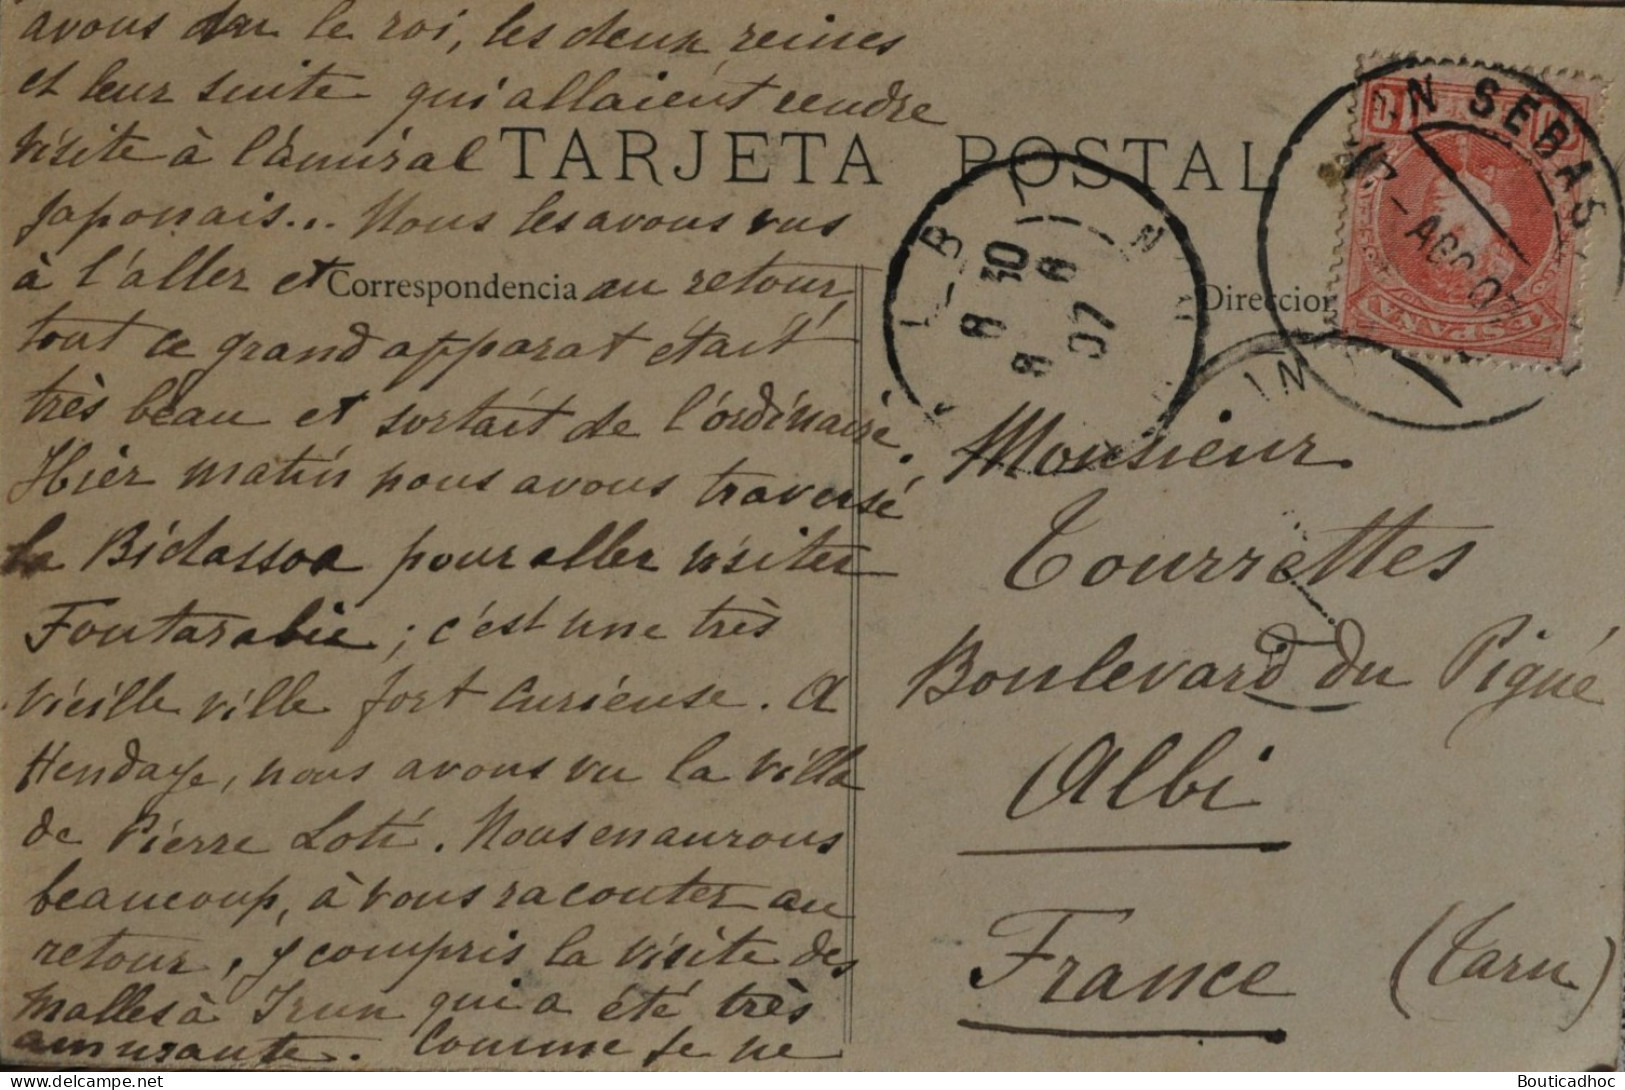 avons vu le roi, les deux reines
et leur suite qui allaient rendre
visite à l'amiral
TARJETA POSTAL
japonais... Nous les avons vus
à l'aller et au retour,
Correspondencia
Direccion
tout ce grand apparat était
très beau et sortait de l'ordinaire.
Hier matin nous avons traversé
la Bidassoa pour aller visiter
Fontarabie ; c'est une très
vieille ville fort curieuse. A
Hendaye, nous avons vu la villa
de Pierre Loti. Nous en aurons
beaucoup, à vous raconter au
retour, y compris la visite des
malles à Irun qui a été très
amusante. Comme je ne
Monsieur
Tourrettes
Boulevard du Pigné
Albi
France (Tarn)
AN SEBAS
AGO 07
ESPAÑA
ALBI
8 30
8 8
07
Bouticadhoc